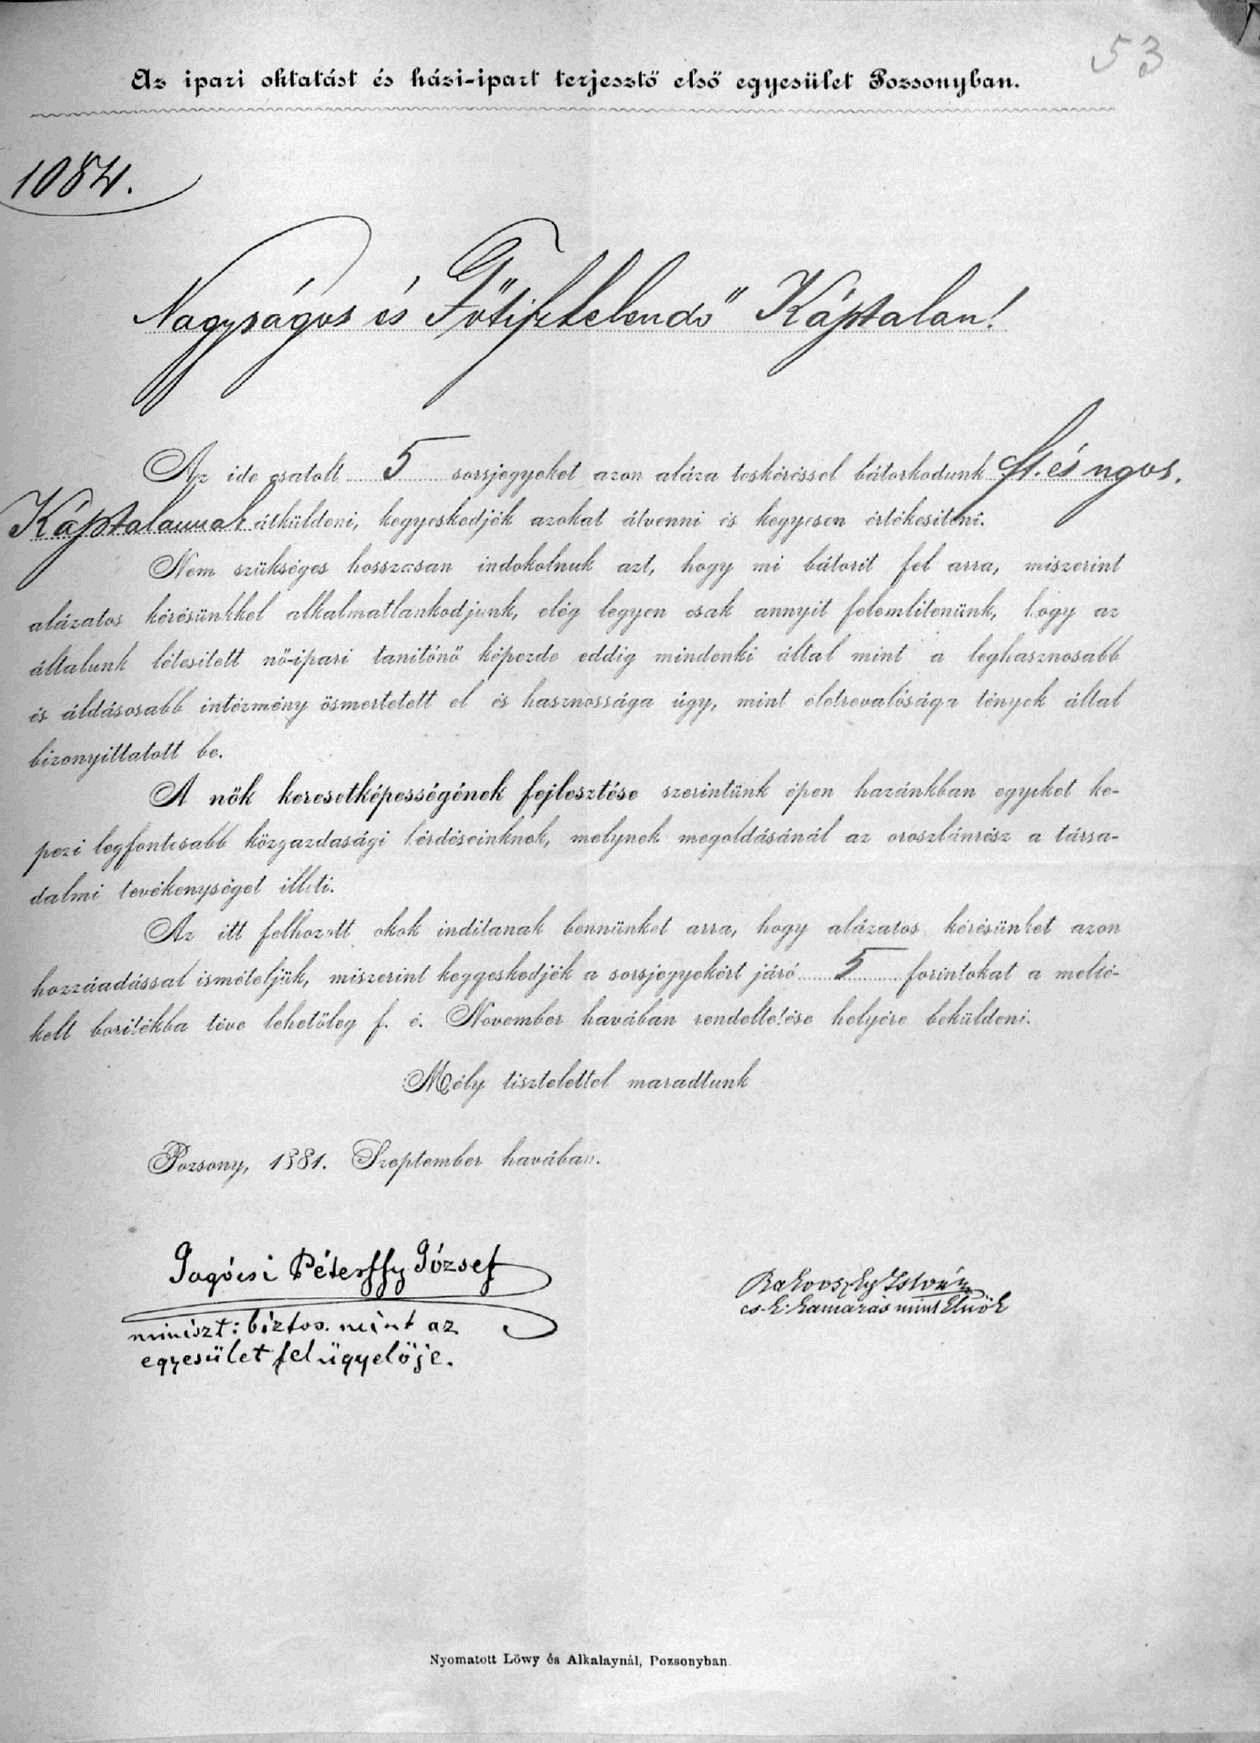 53
Az ipari oktatást és házi-ipart terjesztő első egyesület Pozsonyban.
1084.
Nagyságos és Főtisztelendő Káptalan!
Az ide csatolt 5 sorsjegyeket azon aláza toskéréssel bátorkodunk ft. és ngos.
Káptalannak átküldeni, kegyeskedjék azokat átvenni és kegyesen értékesiteni.
Nem szükséges hosszasan indokolnuk azt, hogy mi bátorit fel arra, miszerint
alázatos kérésünkkel alkalmatlankodjunk, elég legyen csak annyit felemlitenünk, hogy az
általunk létesitett nő-ipari tanitónő képezde eddig mindenki által mint a leghasznosabb
és áldásosabb intézmény ösmertetett el és hasznossága úgy, mint életrevalósága tények által
bizonyittatott be.
A nők keresetképességének fejlesztése szerintünk épen hazánkban egyiket ke-
pezi legfontosabb közgazdasági kérdéseinknek, melynek megoldásánál az oroszlánrész a társa-
dalmi tevékenységet illeti.
Az itt felhozott okok inditanak bennünket arra, hogy alázatos kérésünket azon
hozzáadással ismételjük, miszerint keggeskedjék a sorsjegyekért járó 5 forintokat a mellé-
kelt boritékba téve lehetőleg f. é. November havában rendeltetése helyére beküldeni.
Mély tisztelettel maradtunk
Pozsony, 1881. Szeptember havában.
Jagócsi Péterffy József
miniszt: biztos. mint az
egyesület felügyelője.
Rakovszky István
cs. k. kamarás mint Elnök
Nyomatott Löwy és Alkalaynál, Pozsonyban